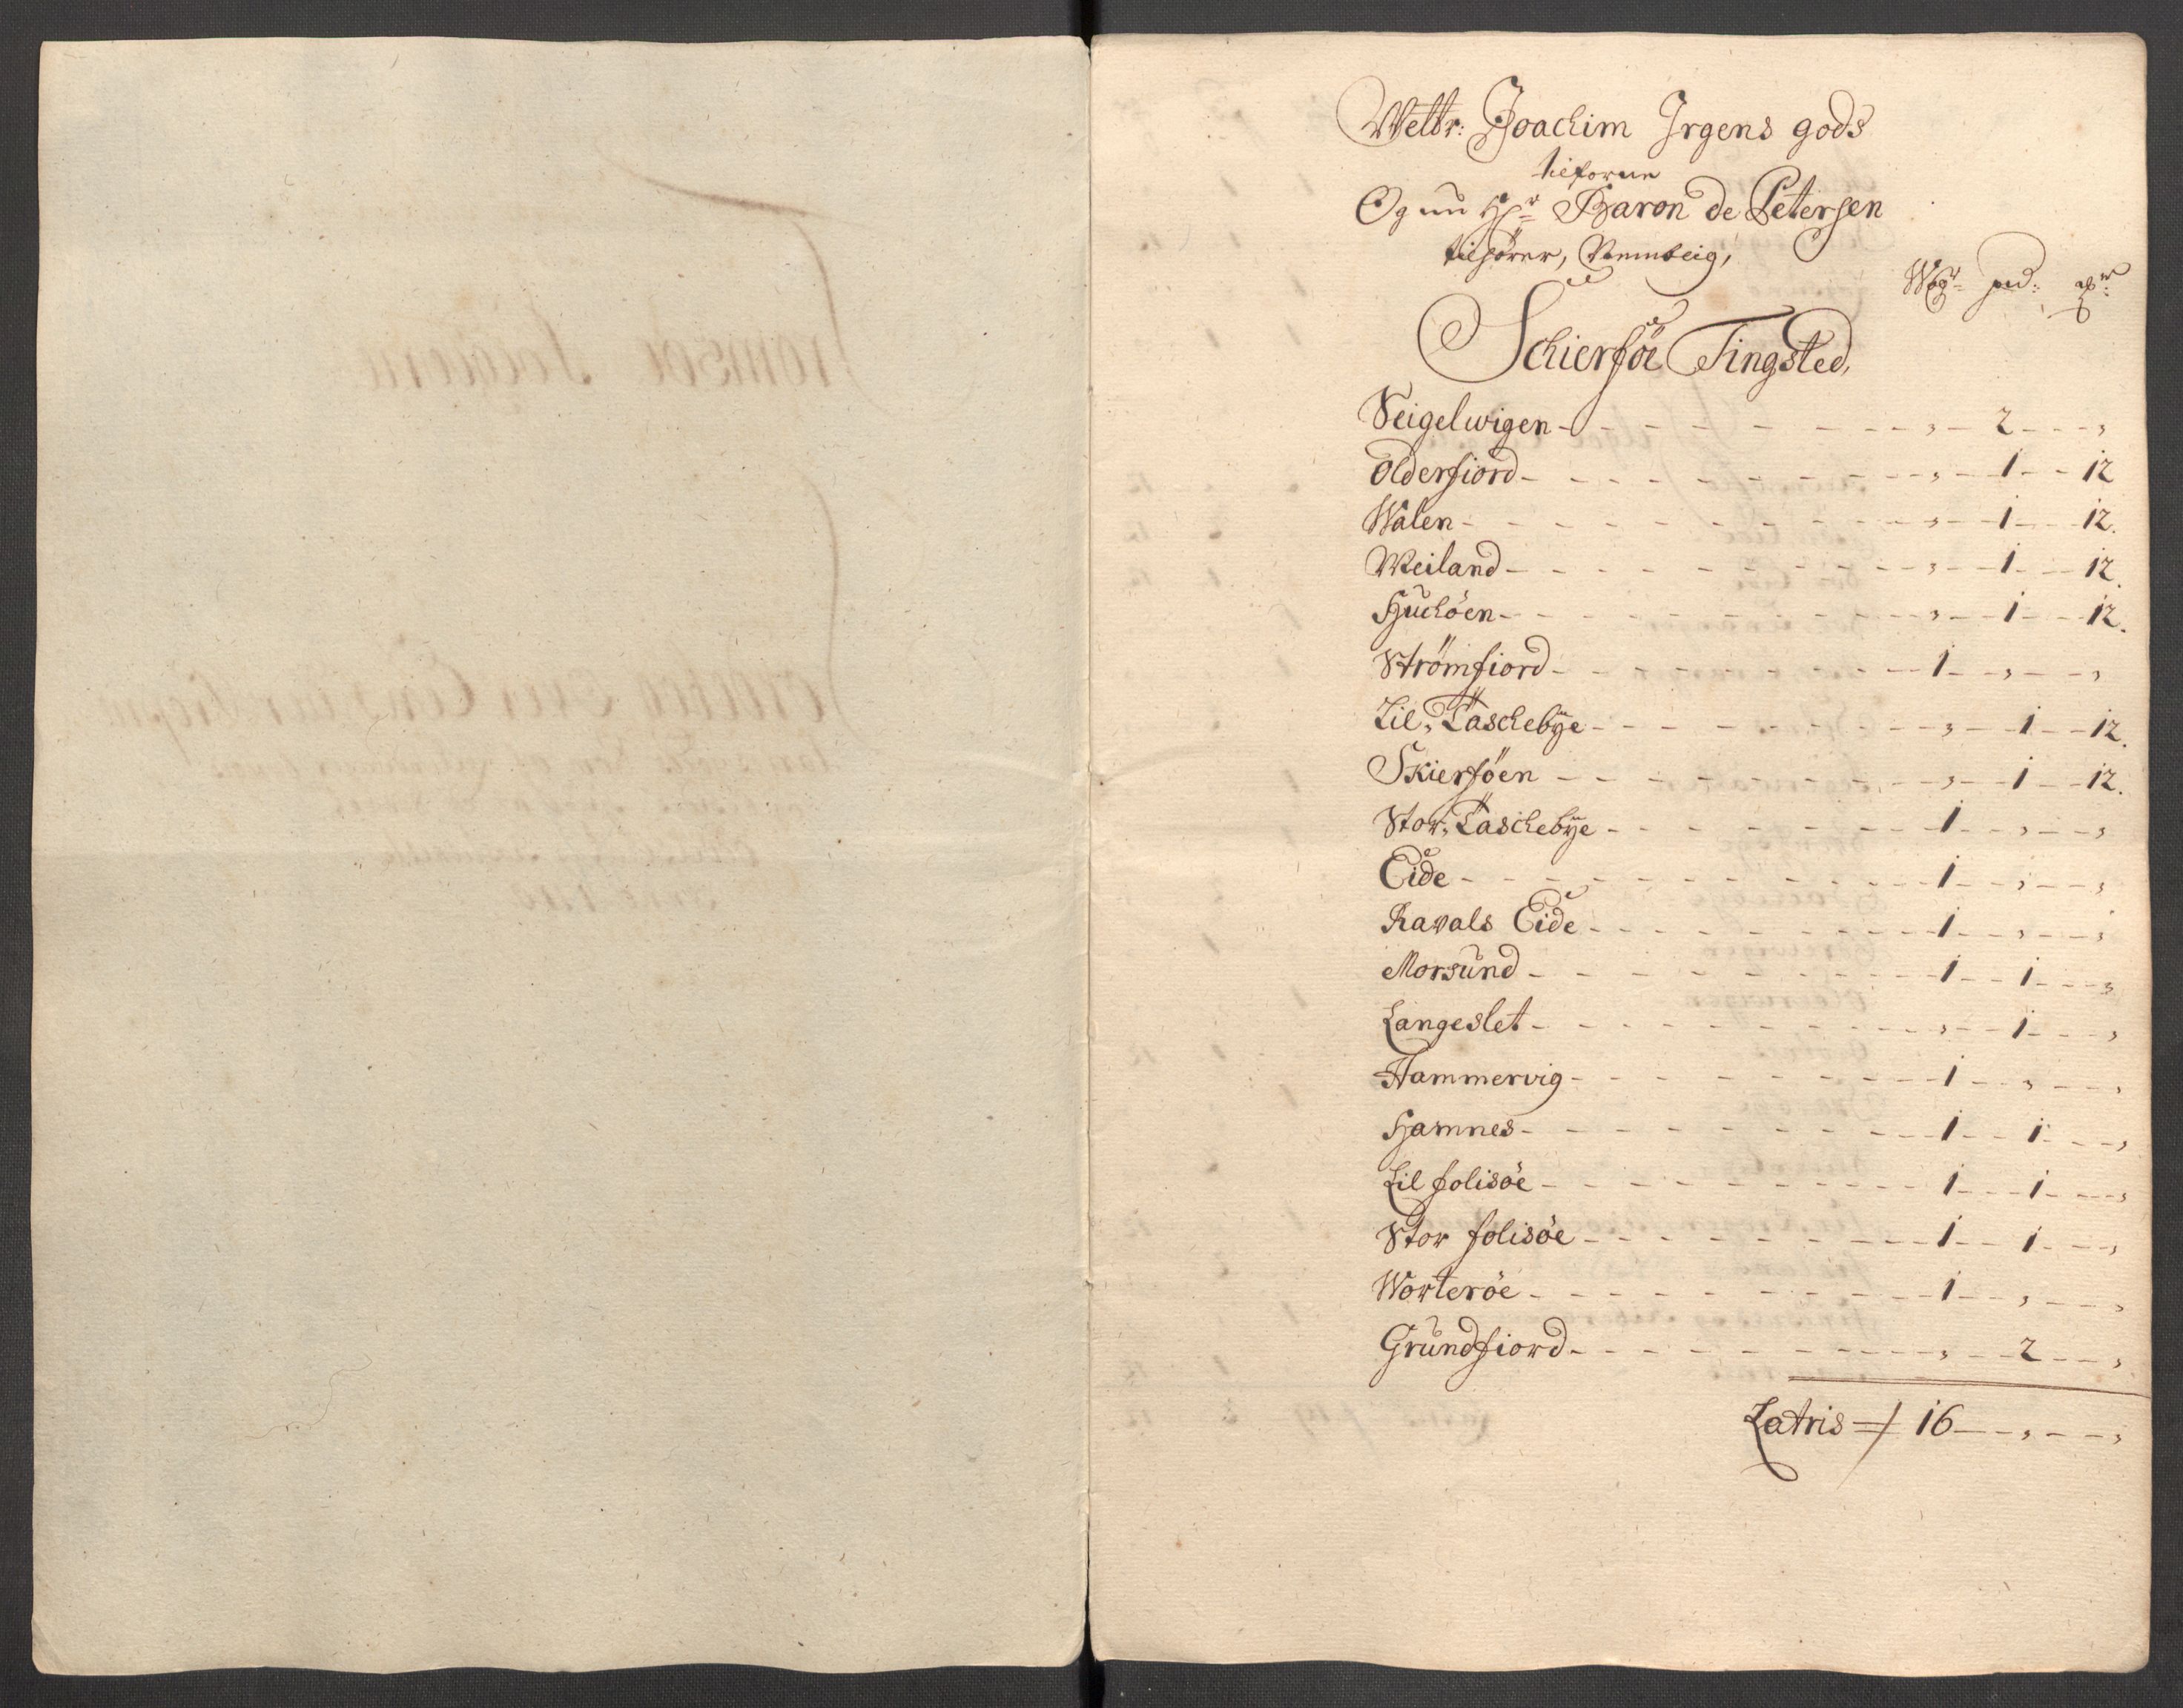 Welbr: Joachim Irgens gods
tilforne
Og nu Hr Baron de Petersen
tilhörer,
Wogr pd:
Schierföe Tingsted,
Seigelwigen - - - - - - - „ - 2 - - - „
Olderfiord - - - - - - - „ - 1 - - 12
Walen - - - - - - - „ - 1 - - 12.
Meiland - - - - - - - „ - 1 - - 12.
Huchöen - - - - - - - „ - 1 - - 12.
Strömfiord - - - - - - - 1 - „ - - „
Lil: Taschebÿe - - - - - - - „ - 1 - - 12.
Skierföen - - - - - - - „ - 1 - - 12.
Stor: Taschebÿe - - - - - - - 1 - „ - - „
Eide - - - - - - - 1 - „ - - „
Ravals Eide - - - - - - - 1 - „ - - „
Morsund - - - - - - - 1 - - 1 - - „
Langeslet - - - - - - - „ - - 1 - - „
Hammervig - - - - - - - 1 - - „ - - „
Hamnes - - - - - - - 1 - - 1 - - „
Lil folisöe - - - - - - - 1 - - 1 - - „
Stor folisöe - - - - - - - 1 - - 1 - - „
Worteröe - - - - - - - 1 - - „ - - „
Grundfiord - - - - - - - „ - - 2 - - „
Latris 16 - - „ - - „